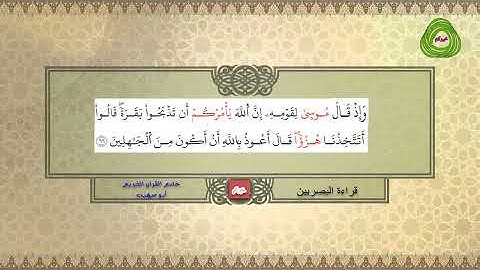 وَإِذْ قَالَ مُوسَىٰ لِقَوْمِهِۦ إِنَّ ٱللَّهَ يَأْمُرْكُمْ أَن تَذْبَحُوا۟ بَقَرَةً ۖ قَالُوا۟
أَتَتَّخِذُنَا هُزُؤًا قَالَ أَعُوذُ بِٱللَّهِ أَنْ أَكُونَ مِنَ ٱلْجَٰهِلِينَ
قراءة البصريين
خادم القرآن الكريم